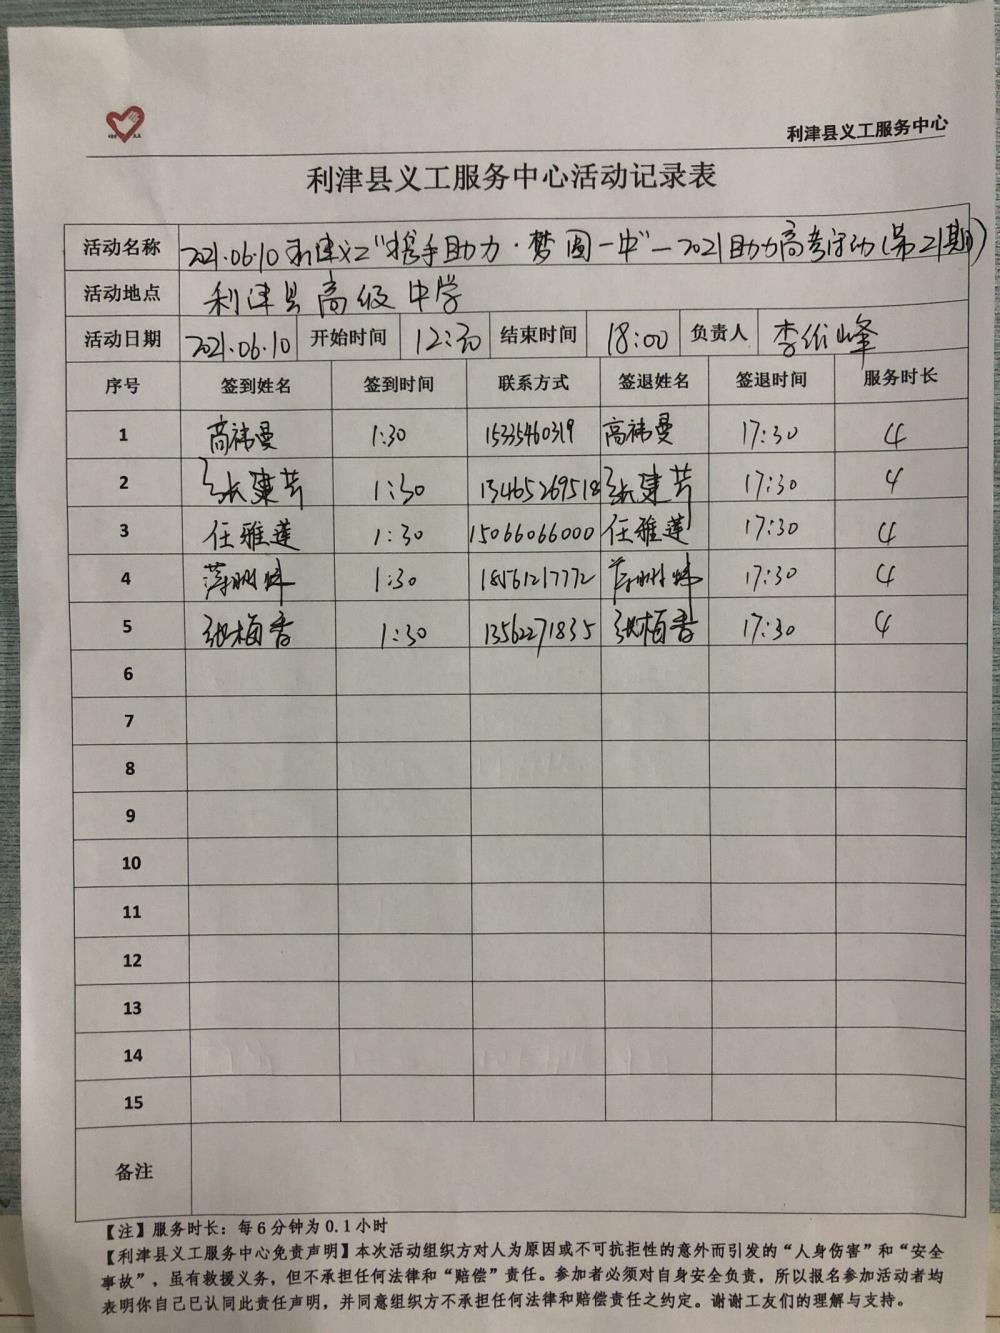 利津县义工服务中心
利津县义工服务中心活动记录表
活动名称 2021.06.10利津义工"携手助力·梦圆一中"—2021助力高考活动(第21期)
活动地点 利津县高级中学
活动日期 2021.06.10 开始时间 12:30 结束时间 18:00 负责人 李 峰
序号 签到姓名 签到时间 联系方式 签退姓名 签退时间 服务时长
1 高祎曼 1:30 15335460319 高祎曼 17:30 4
2 张建芳 1:30 13465269518 张建芳 17:30 4
3 任雅莲 1:30 15066066000 任雅莲 17:30 4
4 1:30 18561217772 17:30 4
5 张梅香 1:30 13562271835 张梅香 17:30 4
6
7
8
9
10
11
12
13
14
15
备注
【注】服务时长：每6分钟为0.1小时
【利津县义工服务中心免责声明】本次活动组织方对人为原因或不可抗拒性的意外而引发的“人身伤害”和“安全
事故”，虽有救援义务，但不承担任何法律和“赔偿”责任。参加者必须对自身安全负责，所以报名参加活动者均
表明你自己已认同此责任声明，并同意组织方不承担任何法律和赔偿责任之约定。谢谢工友们的理解与支持。